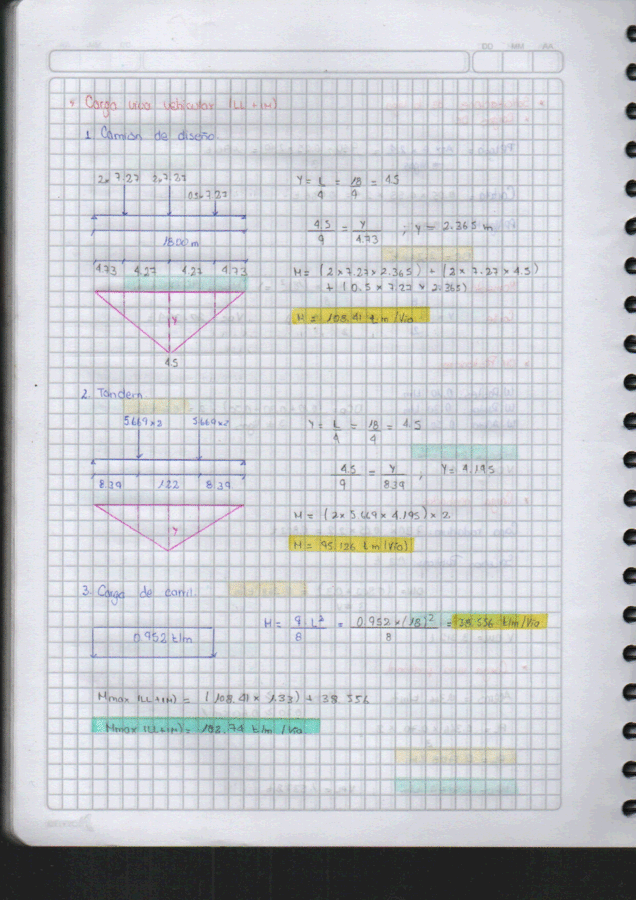 * Carga viva vehicular (LL+IM)
1. Camión de diseño
2x7.27 2x7.27
0.5x7.27
18.00m
4.73 4.27 4.27 4.73
Y
4.5
Y = L/4 = 18/4 = 4.5
4.5/9 = Y/4.73 ; Y = 2.365 m
M = (2x7.27x2.365) + (2x7.27x4.5)
+ (0.5x7.27x2.365)
M = 108.41 t.m/Vía
2. Tandem
5.669x2 5.669x2
8.39 1.22 8.39
Y
Y = L/4 = 18/4 = 4.5
4.5/9 = Y/8.39 ; Y = 4.195
M = (2x5.669x4.195)x2
M = 95.126 t.m/Vía
3. Carga de carril.
0.952 t/m
M = q L²/8 = 0.952x(18)²/8 = 38.556 t/m/Vía
Mmax (LL+IM) = (108.41x1.33) + 38.556
Mmax (LL+IM) = 182.74 t.m/Vía